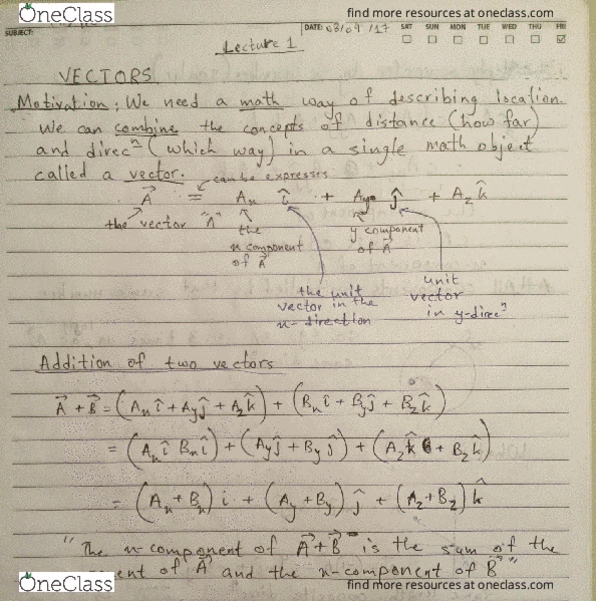 OneClass find more resources at oneclass.com
SUBJECT: DATE: 08/09/17 SAT SUN MON TUE WED THU FRI
Lecture 1
VECTORS
Motivation: We need a math way of describing location.
We can combine the concepts of distance (how far)
and direcⁿ (which way) in a single math object
called a vector.
can be expresses
A⃗ = Aₓ î + Ay ĵ + A_z k̂
the vector "A" the x component of A⃗
y component of A⃗
the unit vector in the x-direction
unit vector in y-direcⁿ
Addition of two vectors
A⃗ + B⃗ = (Aₓ î + Ay ĵ + A_z k̂) + (Bₓ î + By ĵ + B_z k̂)
= (Aₓ î Bₓ î) + (Ay ĵ + By ĵ) + (A_z k̂ + B_z k̂)
= (Aₓ + Bₓ) i + (Ay + By) ĵ + (A_z + B_z) k̂
"The x-component of A⃗+B⃗ is the sum of the
nent of A⃗ and the x-component of B⃗"
OneClass find more resources at oneclass.com